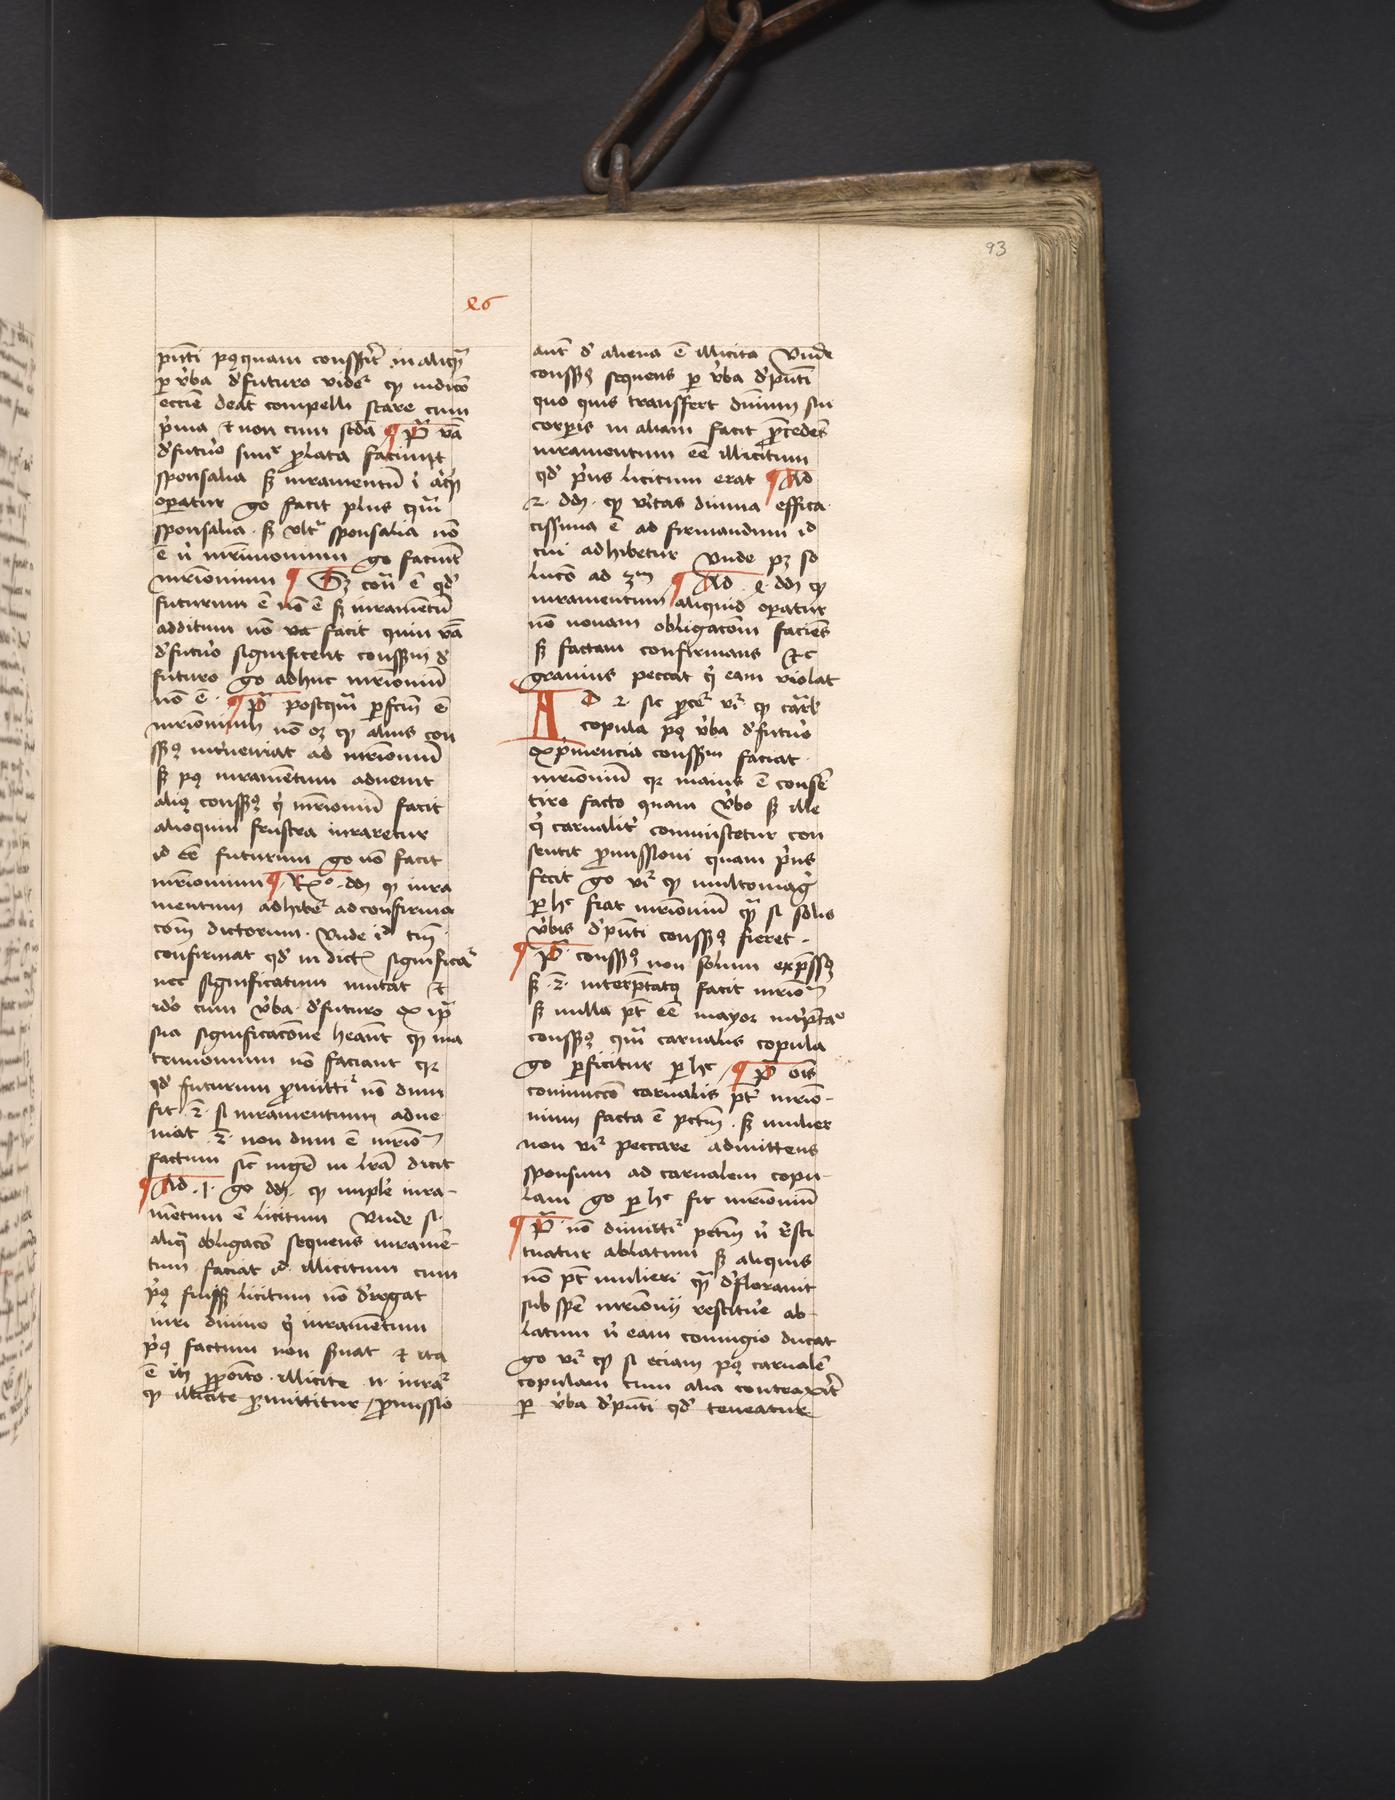 93
28
pñti pꝯquam conse̅sit in aliqua̅
p vba d' futuro videt' qꝫ iudicio
ecc̅ie deat compelli stare cum
p'ma et non cum sc̅da ¶ P̅ vba
d'futuro siml' prolata faciunt
sponsalia sꝫ iuramentu̅ i̅ aliqꝫ
operatur go facit plus qua̅
sponsalia . sꝫ vlt' sponsalia no̅
e̅ n̅ mr̅imonium go faciunt
mr̅imonium ¶ Sꝫ con̅ e̅ qd'
futurum e̅ no̅ e̅ sꝫ iuramentu̅
additum non facit quin vba
d'futuro significent conse̅sum d'
futuro go adhuc mr̅imoniu̅
no̅ e̅ . ¶ p̅ postqua̅ p̅fectu̅ e̅
mr̅imonium no̅ oꝫ qꝫ alius con
se̅sꝯ interueniat ad mr̅imoniu̅
sꝫ pꝯ iuramentum aduenit
aliꝯ conse̅sꝯ q' mr̅imoniu̅ facit
alioquin frustra iuraretur
id e̅e̅ futurum go no̅ facit
mr̅imonium ¶ Rn̅o . ddꝫ qꝫ iura
mentum adhibet' ad confirma
co̅m dictorum . Vnde id tm̅
confirmat qd' in dict' significat'
nec significatum mutat et
ido cum vba . d'futuro ex ip̅a
sua significaco̅ne heant qꝫ ma
trimonium no̅ faciant qꝛ
qd' futurum p̅mittit' no̅ dum
fit . ꝛ . si iuramentum adue
niat . ꝛ . non dum e̅ mr̅io̅
factum sic mgr̅ in lr̅a dicit
¶ Ad . 1 . go ddꝫ . qꝫ imple̅ iura-
mentum e̅ licitum Vnde si
aliqua obligaco̅ sequens iuramen-
tum faciat id illicitum cum
p'ꝯ fuisset licitum no̅ d'rogat
iuri diuino q' iuramentum
p'ꝯ factum non s'uat et ita
e̅ in p̅poito . illicite .n. iurat'
qꝫ illicite p̅mittitur / p̅missio
aut d' aliena e̅ illicita Vnde
conse̅sꝯ sequens p vba d'pñti
quo quis transfert dn̅ium sui
corp̅is in aliam facit p̅cedens
iuramentum e̅e̅ illicitum
qd' p'us licitum erat ¶ Ad
2 . ddꝫ . qꝫ v'itas diuina effica
cissima e̅ ad firmandum id
cui adhibetur Vnde pꝫ so
luco̅ ad 3m ¶ Ad . 4 . ddꝫ qꝫ
iuramentum aliquid operatur
no̅ nouam obligaco̅m faciens
sꝫ factam confirmans Et sic
grauius peccat q' eam violat
A D 2 . sic p̅cet' vr' qꝫ carl'
copula pꝯ vba d'futuro
exp̅mencia conse̅sum faciat
mr̅imoniu̅ qꝛ maius e̅ conse̅-
tire facto quam vbo sꝫ ille
q' carnalit' commiscetur con
sentit p̅missioni quam p'us
fecit go vr' qꝫ multomag'
p hc fiat mr̅imoniu̅ qua̅ si solis
vbis d'pñti conse̅sꝯ fieret .
¶ P̅ . conse̅sꝯ non solum exp̅ssꝯ
sꝫ . ꝛ . interp̅tatꝯ facit mr̅io̅
sꝫ nulla pt̅ e̅e̅ mayor int'p̅tao
conse̅sꝯ qua̅ carnalis copula
go p̅ficitur p hc ¶ P̅ ois
coniuncco̅ carnalis p̅t' mr̅io-
nium facta e̅ pctm̅ . sꝫ mulier
non vr' peccare admittens
sponsum ad carnalem copu-
lam go p hc fit mr̅imoniu̅
¶ P̅ no̅ dimittit' pctm̅ n̅ resti
tuatur ablatum sꝫ aliquis
no̅ pt̅ mulieri qua̅ d'florauit
sub spe̅ mr̅imonij restitu'e ab-
latum n̅ eam coniugio ducat
go vr' qꝫ si eciam pꝯ carnale̅
copulam cum alia contraxit̅
p vba d'pñti qd' teneatur